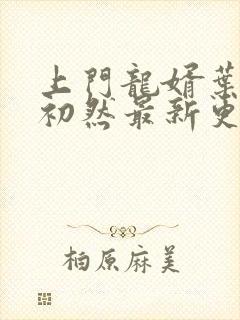 上門龍婿葉
初然最新更
柏原麻美